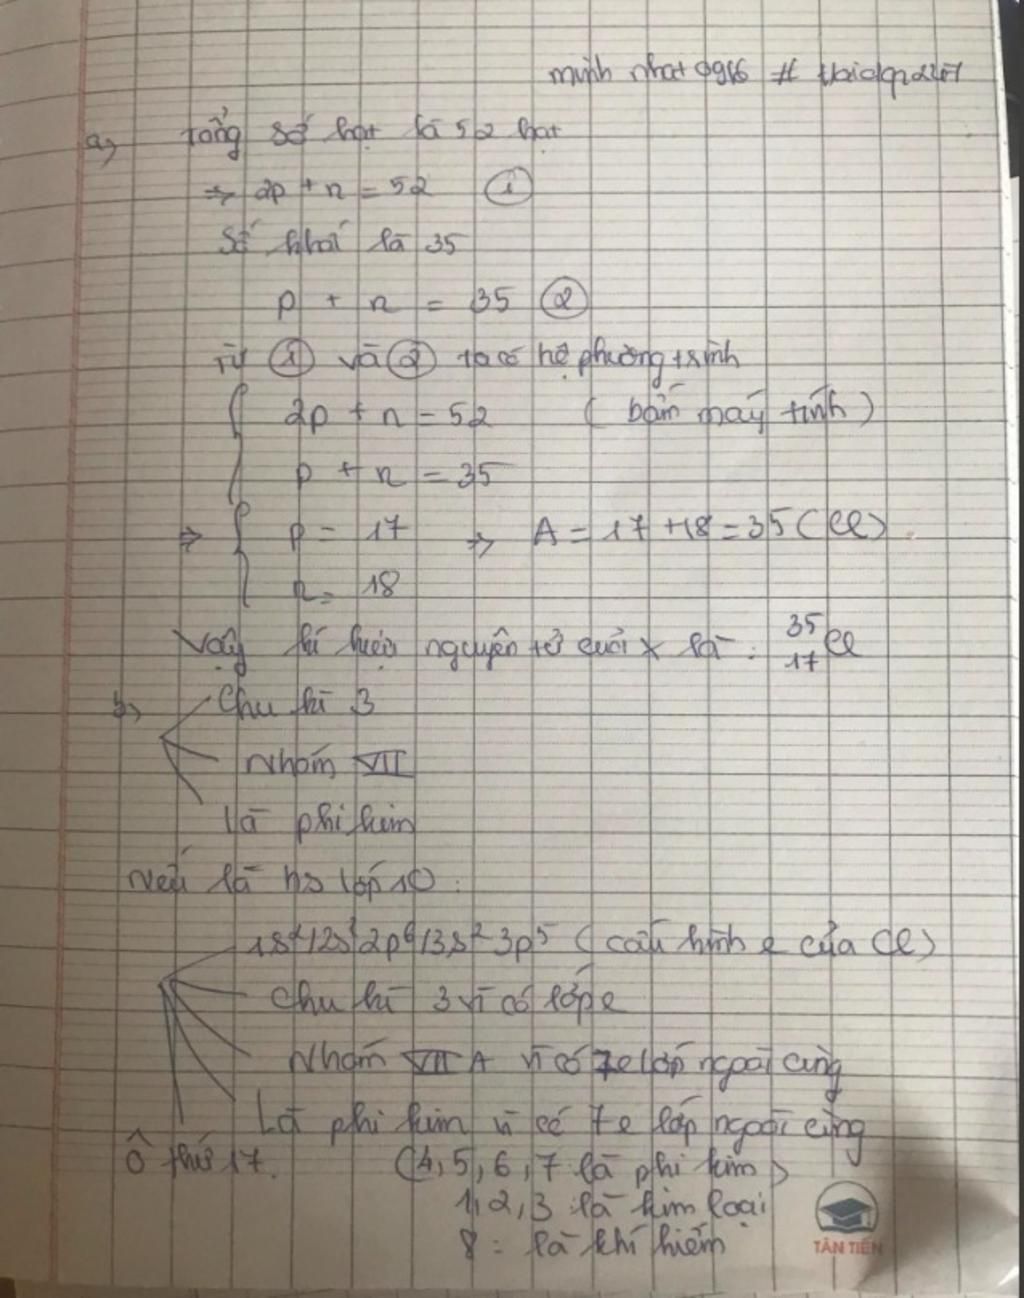 minh nhat 0916 #
a) Tổng số hạt là 52 hạt
=> 2p + n = 52 ①
Số khối là 35
p + n = 35 ②
Từ ① và ② ta có hệ phương trình
{ 2p + n = 52 (bấm máy tính)
p + n = 35
=> { p = 17 => A = 17 + 18 = 35 (Cl)
n = 18
Vậy kí hiệu nguyên tử của X là : ³⁵₁₇Cl
b) Chu kì 3
Nhóm VII
Là phi kim
Nếu là hs lớp 10 :
1s²/2s²2p⁶/3s²3p⁵ (cấu hình e của Cl)
Chu kì 3 vì có lớp e
Nhóm VII A vì có 7e lớp ngoài cùng
Là phi kim vì có 7e lớp ngoài cùng
Ô thứ 17. (4, 5, 6, 7 là phi kim)
1, 2, 3 là kim loại
8 : là khí hiếm
TÂN TIẾN